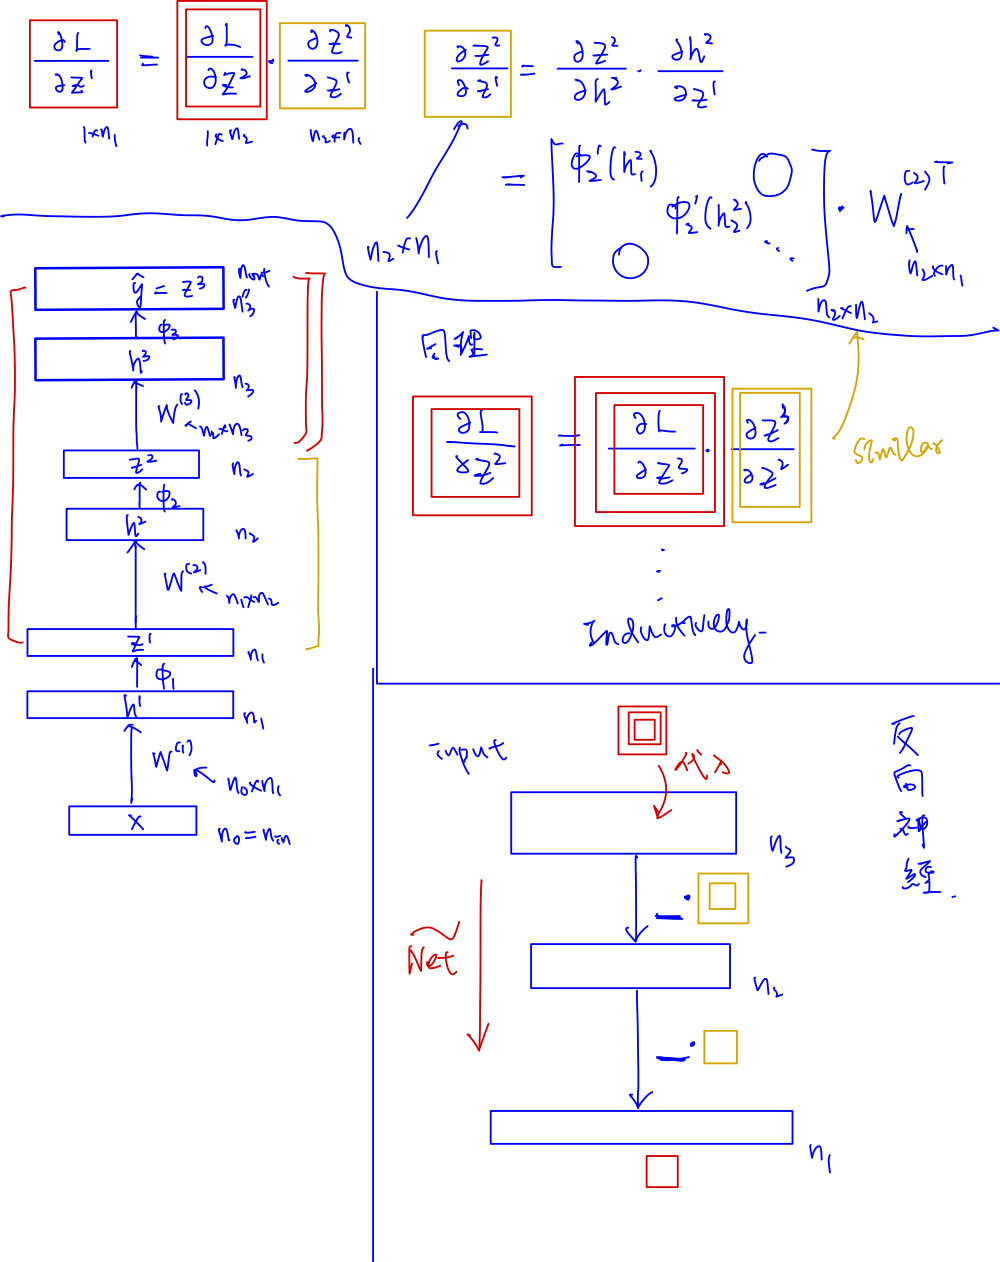 ∂L/∂z¹ = ∂L/∂z² · ∂z²/∂z¹
1×n₁ 1×n₂ n₂×n₁
∂z²/∂z¹ = ∂z²/∂h² · ∂h²/∂z¹
= [ϕ₂'(h₁²) ϕ₂'(h₂²) ⋱ ○ ○] · W⁽²⁾ᵀ
n₂×n₁
n₂×n₁
n₂×n₂
ŷ = z³
n_out
"
n₃
ϕ₃
h³
n₃
W⁽³⁾
n₂×n₃
z²
n₂
ϕ₂
h²
n₂
W⁽²⁾
n₁×n₂
z¹
n₁
ϕ₁
h¹
n₁
W⁽¹⁾
n₀×n₁
x
n₀ = n_in
同理
∂L/×z² = ∂L/∂z³ · ∂z³/∂z²
similar
⋮
Inductively
input
代入
n₃
_·
Net
n₂
_·
n₁
反向神經.